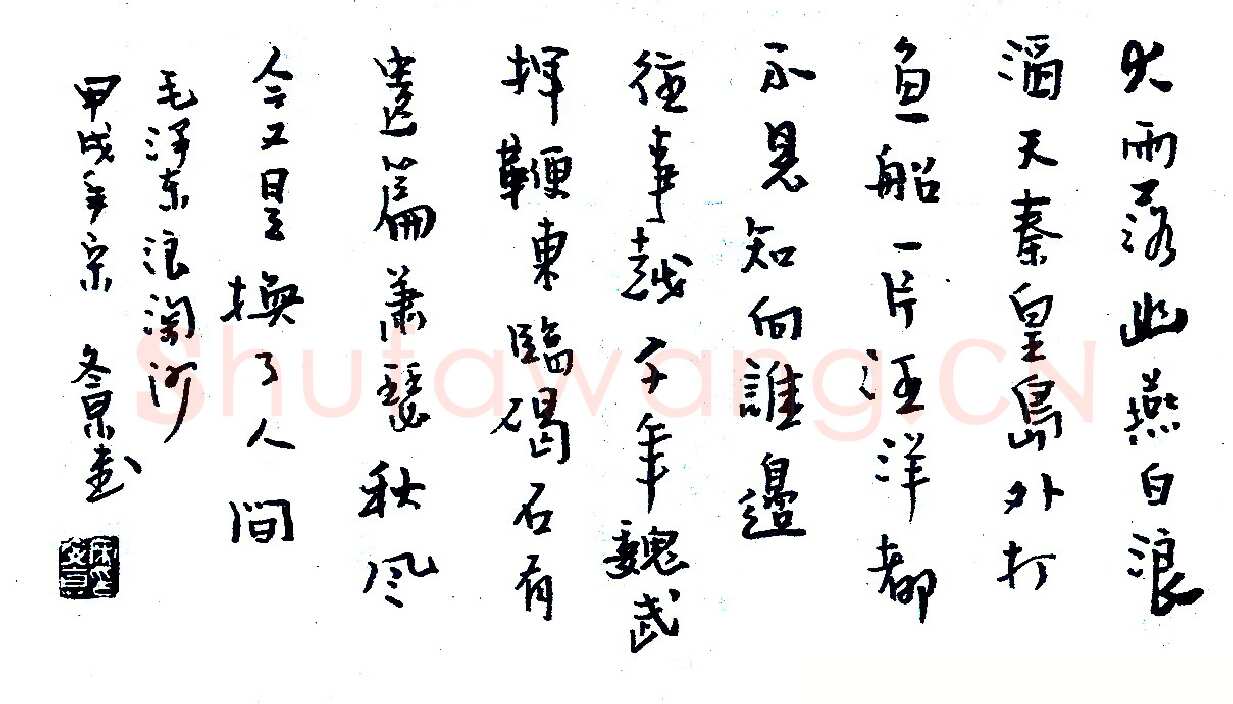 大雨落幽燕白浪
滔天秦皇島外打
鱼船一片汪洋都
不見知向誰邊
往事越千年魏武
揮鞭東臨碣石有
遺篇蕭瑟秋风
今又是換了人間
毛泽东浪淘沙
甲戌年
Shufawang.CN